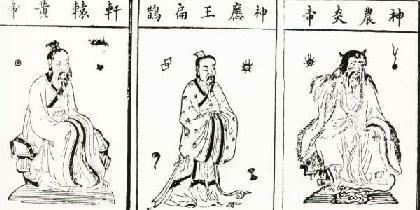 神農炎帝
神應王扁鵲
軒轅黃帝